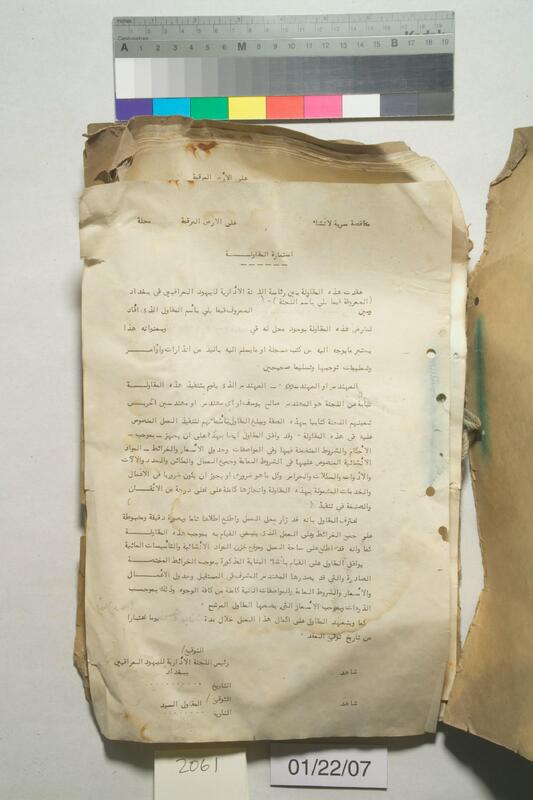 Inches
Centimetres
Kodak
A 1 2 3 4 5 6 M 8 9 10 11 12 13 14 15 B 17 18 19
على الارض المرقمة
مناقصة سرية لانشاء على الارض المرقمة محلة
استمارة المقاولـــــة
عقدت هذه المقاولة بين رئاسة اللجنة الادارية لليهود العراقيين في بغداد
(المعروفة فيما يلي باسم اللجنة)
وبين المعروف فيما يلي باسم المقاول الذي افاد
هذه المقاولة بوجود محل له في وبعنوانه هذا
يعتبر مايوجه اليه من كتب مسجلة او مايسلم اليه باليد من انذارات واوامر
وتعليمات توجيها وتسليما صحيحين
المهندس او المهندسون - المهندس الذي يقوم بتنفيذ هذه المقاولة
نيابة عن اللجنة هو المهندس صالح يوسف او اي مهندس او مهندسين آخرين
تعينهم اللجنة كتابيا بهذه الصفة ويبلغ المقاول بأسمائهم لتنفيذ العمل المنصوص
عليه في هذه المقاولة . وقد وافق المقاول ايضا بهذا على ان يجهز - بموجب -
الاحكام والشروط المتضمنة فيها وفي المواصفات وجدول الاسعار والخرائط - المواد
الانشائية المنصوص عليها في الشروط العامة وجميع العمال والمكائن والعدد والآلات
والأدوات وكل ما هو ضروري او يجوز ان يكون ضروريا في الاعمال
والخدمات المشمولة بهذه المقاولة وانجازها كاملة على اعلى درجة من الاتقان
والصنعة في تنفيذ ( )
يعترف المقاول بانه قد زار محل العمل واطلع اطلاعا تاما وبصورة دقيقة ومضبوطة
على جميع الخرائط وعلى العمل الذي ينبغي القيام به بموجب هذه المقاولة
كما وانه قد اطلع على ساحة العمل ومواقع خزن المواد الانشائية والتأسيسات المائية
يوافق المقاول على القيام بانشاء البناية المذكورة بموجب الخرائط
الصادرة والتي قد يصدرها المهندس المشرف في المستقبل وجدول الاعمال
والاسعار والشروط العامة والمواصفات الفنية كاملة من كافة الوجوه وذلك بموجب
وبموجب الاسعار التي يضعها المقاول
كما ويتعهد المقاول على اكمال هذا العمل خلال مدة يوما اعتبارا
من تاريخ توقيع العقد .
التوقيع /
رئيس اللجنة الادارية لليهود العراقيين
شاهد ببغداد
التاريخ
التوقيع /
شاهد المقاول السيد
التاريخ
2061
01/22/07